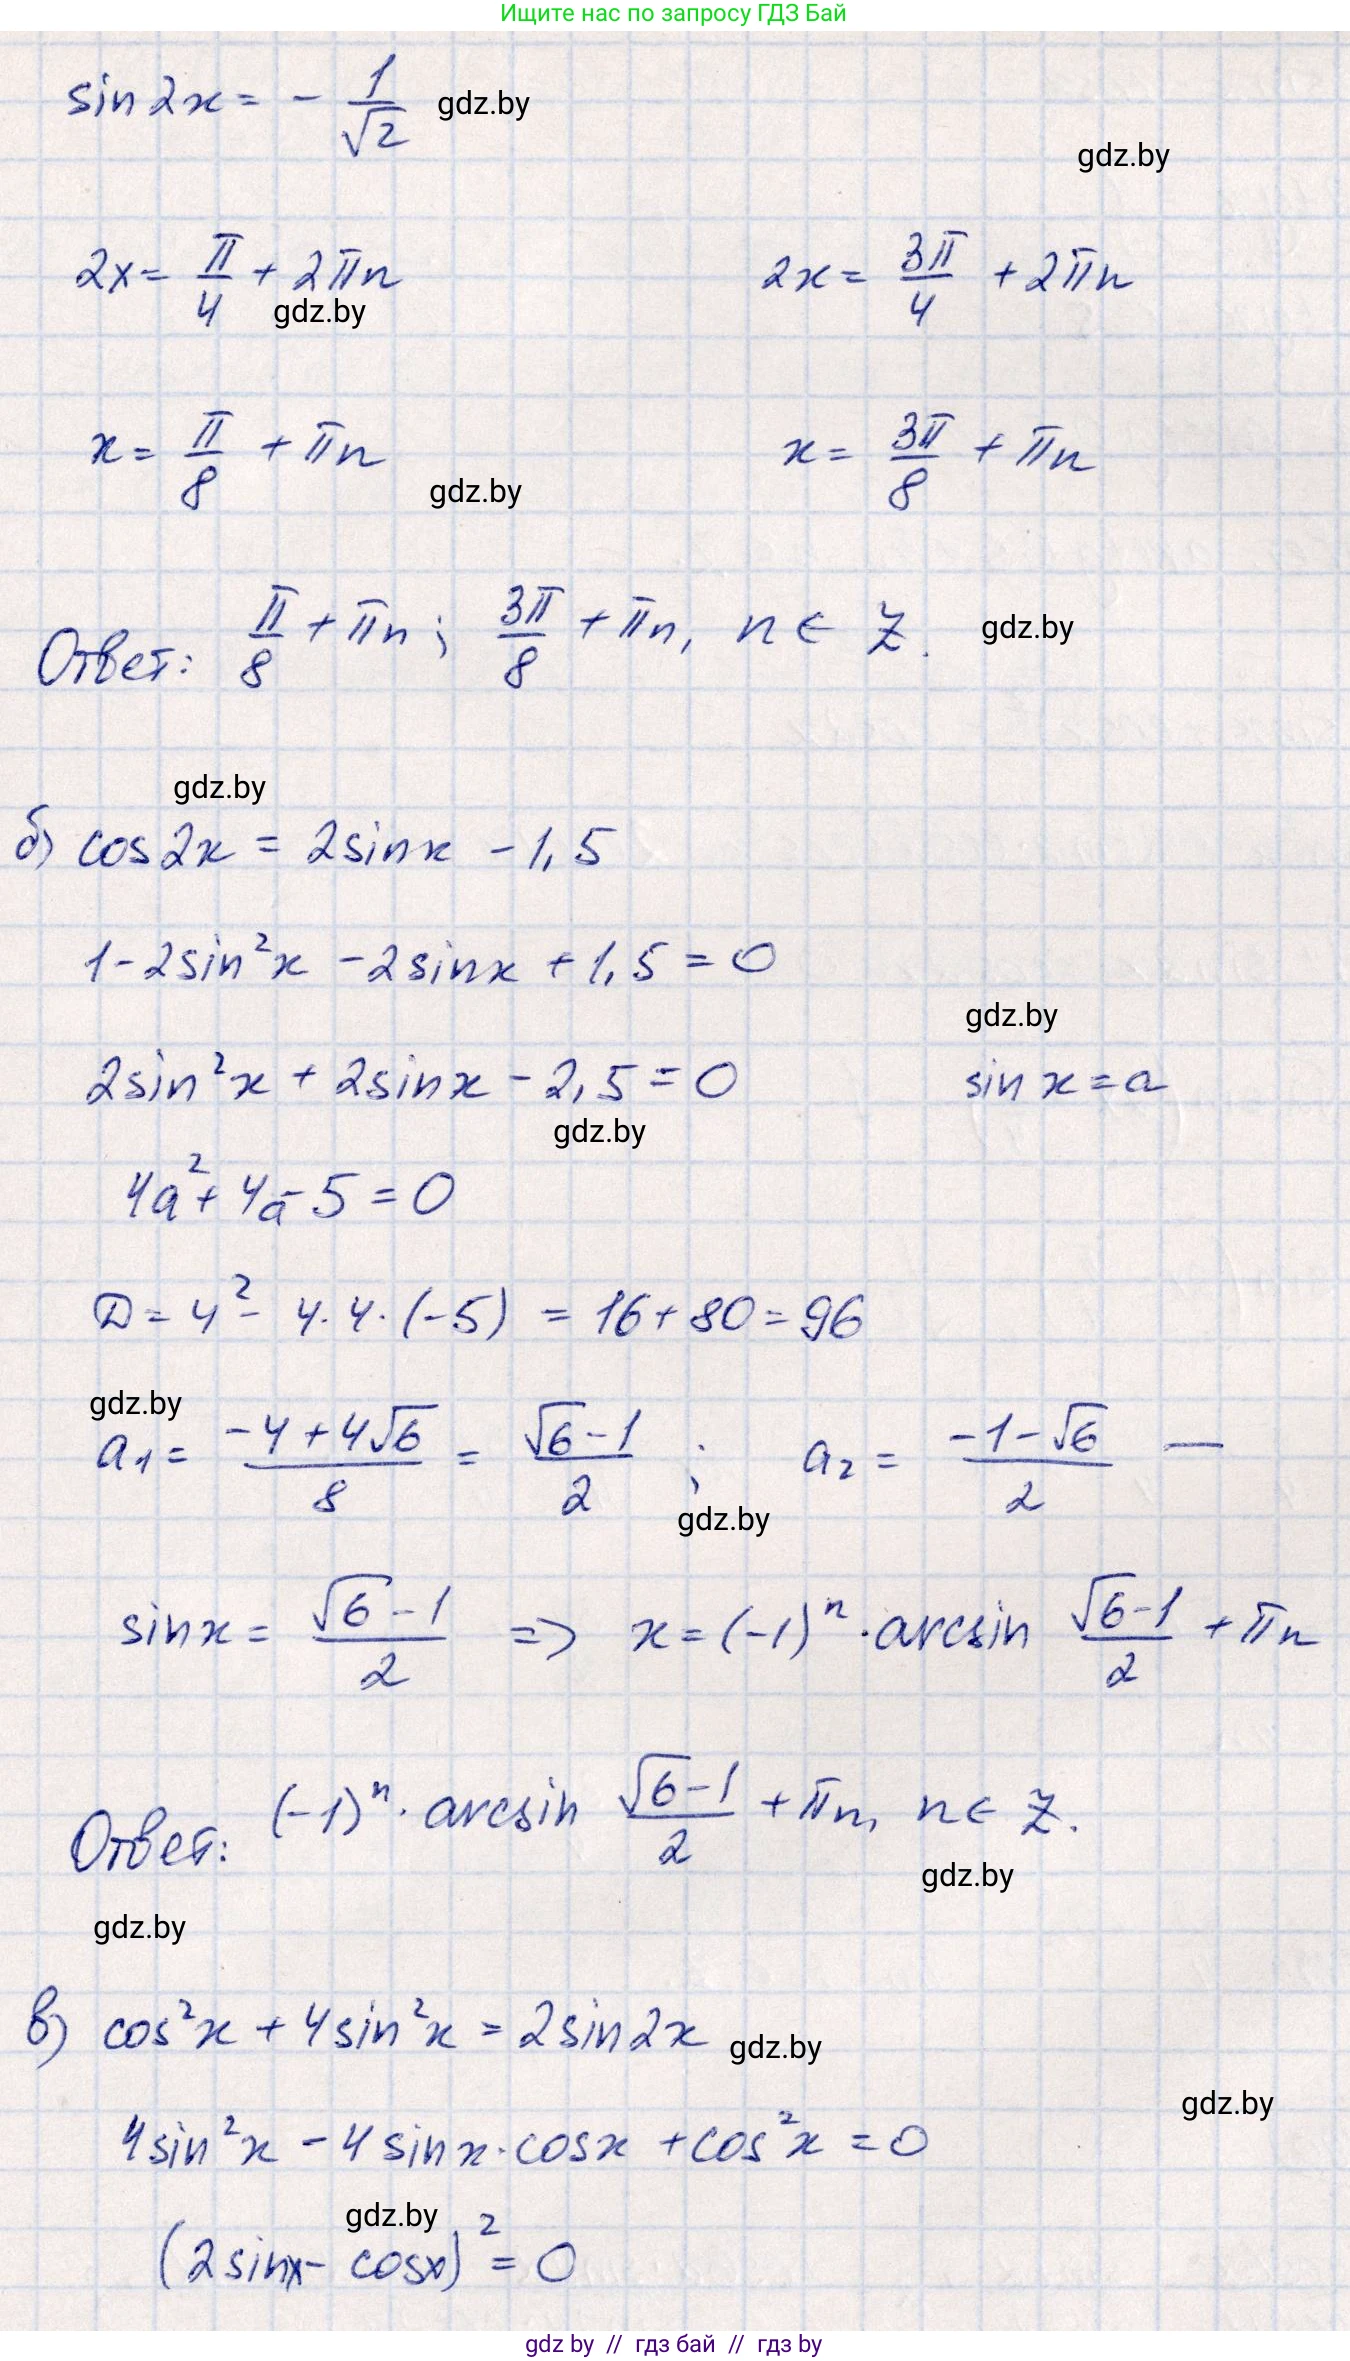 Ищите нас по запросу ГДЗ Бай
sin 2x = - 1/√2 gdz.by
gdz.by
2x = π/4 + 2πn 2x = 3π/4 + 2πn
gdz.by
x = π/8 + πn x = 3π/8 + πn
gdz.by
Ответ: π/8 + πn; 3π/8 + πn, n ∈ Z. gdz.by
gdz.by
б) cos 2x = 2sinx - 1,5
1 - 2sin²x - 2sinx + 1,5 = 0
gdz.by
2sin²x + 2sinx - 2,5 = 0 sin x = a
gdz.by
4a² + 4a - 5 = 0
D = 4² - 4·4·(-5) = 16 + 80 = 96
gdz.by
a₁ = (-4+4√6)/8 = (√6-1)/2 ; a₂ = (-1-√6)/2 —
gdz.by
sinx = (√6-1)/2 => x = (-1)ⁿ · arcsin (√6-1)/2 + πn
Ответ: (-1)ⁿ · arcsin (√6-1)/2 + πn, n ∈ Z.
gdz.by
gdz.by
в) cos²x + 4sin²x = 2sin2x
gdz.by
gdz.by
4sin²x - 4sinx·cosx + cos²x = 0
gdz.by
(2sinx - cosx)² = 0
gdz by // гдз бай // гдз by